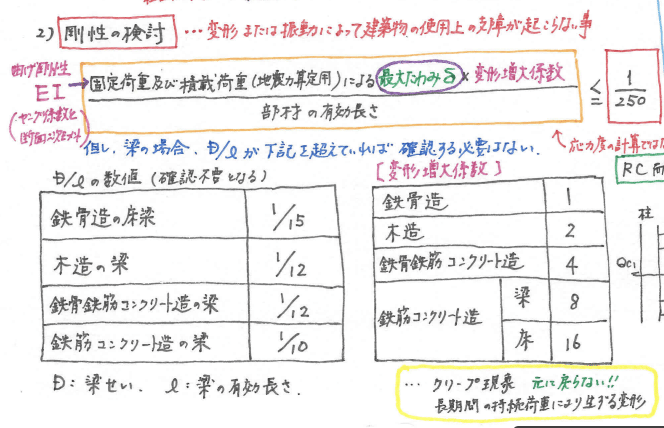 2) 剛性の検討 … 変形または振動によって建築物の使用上の支障が起こらない事
曲げ剛性
EI
(ヤング係数と
断面二次モーメント)
固定荷重及び積載荷重(地震力算定用)による最大たわみδ × 変形増大係数
部材の有効長さ
≦ 1/250
但し、梁の場合、D/lが下記を超えていれば確認する必要はない。
↑応力度の計算では
D/lの数値 (確認不要となる)
鉄骨造の床梁 1/15
木造の梁 1/12
鉄骨鉄筋コンクリート造の梁 1/12
鉄筋コンクリート造の梁 1/10
D:梁せい. l:梁の有効長さ.
[変形増大係数]
鉄骨造 1
木造 2
鉄骨鉄筋コンクリート造 4
鉄筋コンクリート造 梁 8
床 16
… クリープ現象 元に戻らない!!
長期間の持続荷重により生ずる変形
RC
柱
Qc1